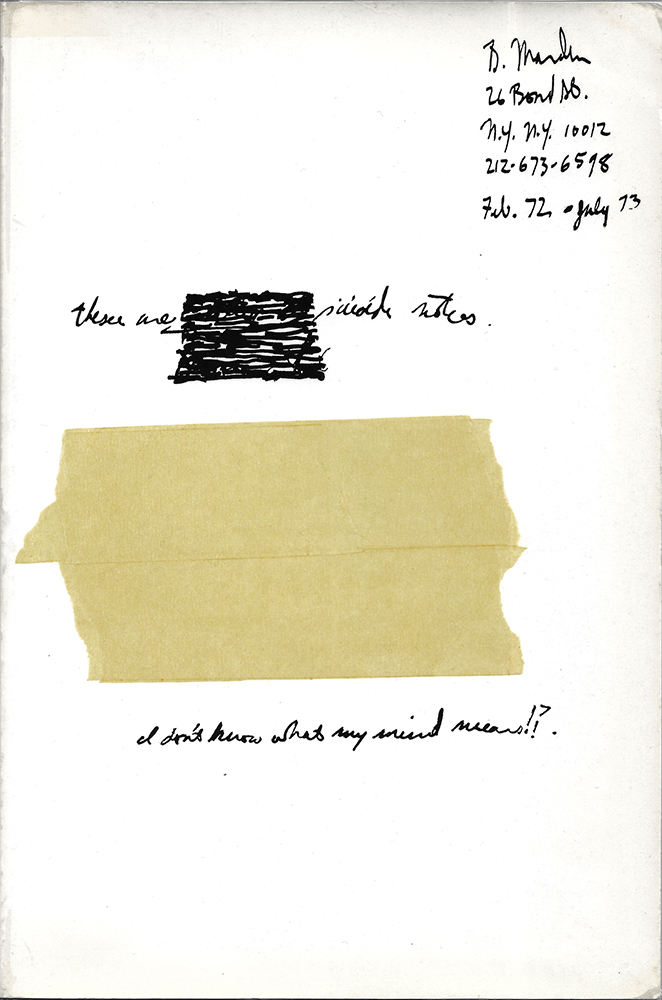 B. Marden
26 Bond St.
N.Y. N.Y. 10012
212-673-6598
Feb. 72 - July 73
these are suicide notes.
I don't know whats my mind means!!?.